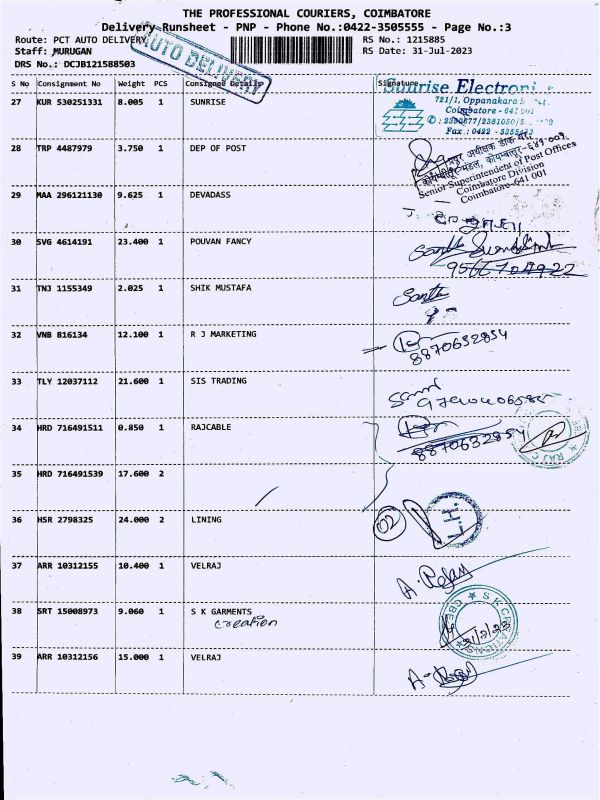 THE PROFESSIONAL COURIERS, COIMBATORE
Delivery Runsheet - PNP - Phone No.:0422-3505555 - Page No.:3
Route: PCT AUTO DELIVERY RS No.: 1215885
Staff: MURUGAN RS Date: 31-Jul-2023
DRS No.: DCJB121588503
AUTO DELIVERY
S No Consignment No Weight PCS Consigned Details Signature
27 KUR 530251331 8.005 1 SUNRISE
Sunrise
721/1, Oppanakara
Coimbatore - 641
Fax : 0422 -
28 TRP 4487979 3.750 1 DEP OF POST
Senior Superintendent of Post Offices
Coimbatore Division
Coimbatore-641 001
29 MAA 296121130 9.625 1 DEVADASS
30 SVG 4614191 23.400 1 POUVAN FANCY
31 TNJ 1155349 2.025 1 SHIK MUSTAFA
32 VNB 816134 12.100 1 R J MARKETING
8870652854
33 TLY 12037112 21.600 1 SIS TRADING
34 HRD 716491511 0.850 1 RAJCABLE
35 HRD 716491539 17.600 2
36 HSR 2798325 24.000 2 LINING
02
37 ARR 10312155 10.400 1 VELRAJ
38 SRT 15008973 9.060 1 S K GARMENTS
creation
39 ARR 10312156 15.000 1 VELRAJ